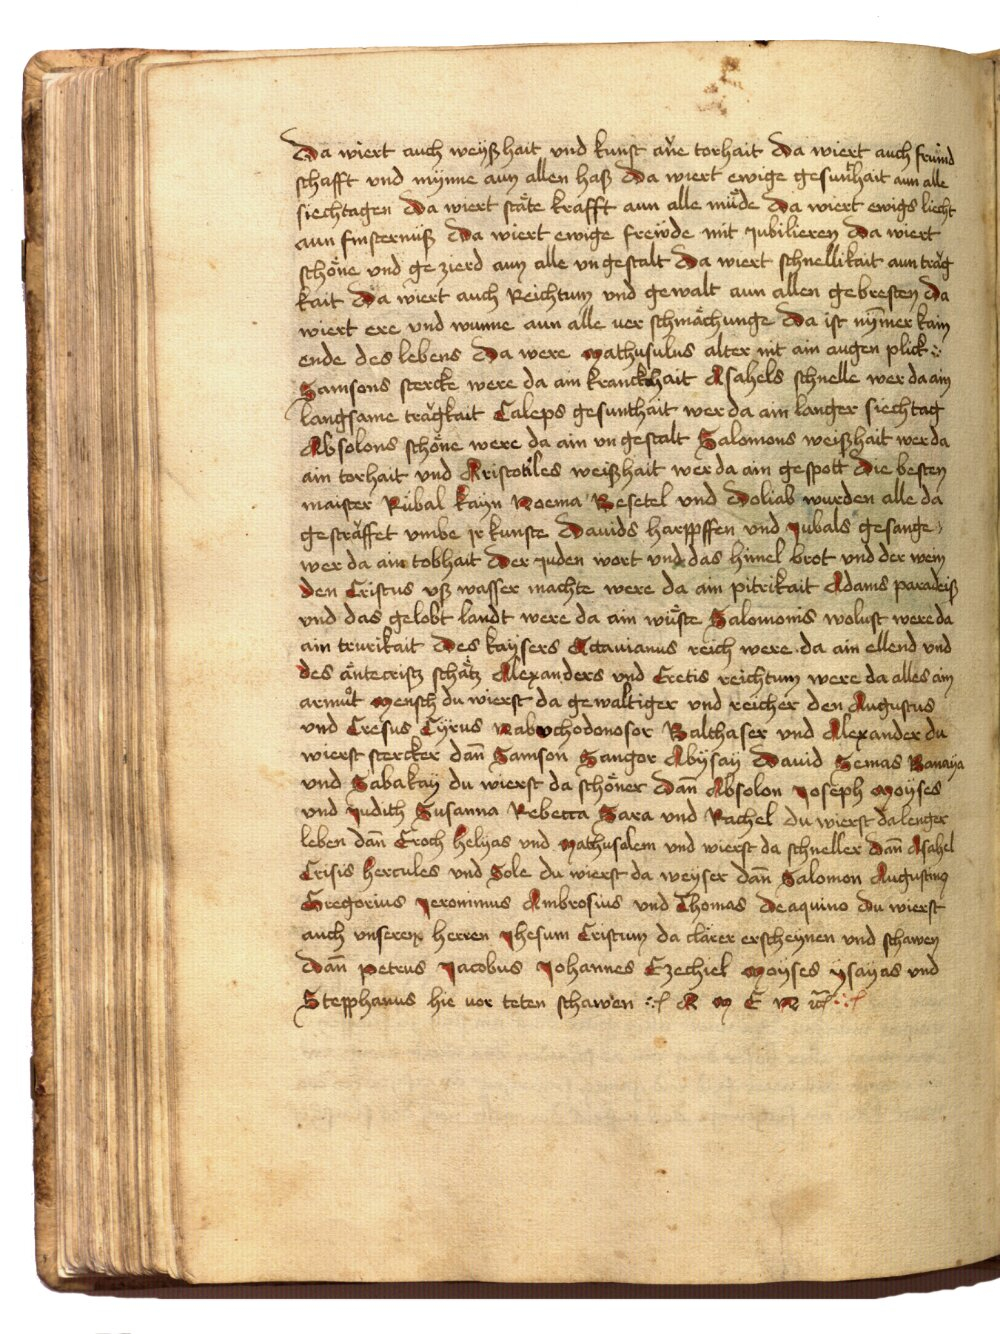 Da wiert auch weyßhait und kunst ane torhait Da wiert auch fründ
schafft und mÿnne aun allen haß Da wiert ewige gesunthait aun alle
siechtagen Da wiert stäte krafft aun alle müde Da wiert ewigs liecht
aun finsternüß Da wiert ewige freẅde mit jubilieren Da wiert
schöne und ge zierd aun alle un gestalt Da wiert schnellikait aun träg
kait Da wiert auch Reichtum und gewalt aun allen gebresten Da
wiert ere und wunne aun alle uer schmächunge Da ist nÿmer kain
ende des lebens Da were Mathusulus alter nit ain augen plick
Samsons stercke were da ain kranckhait Asahels schnelle wer da ain
langsame trägkait Caleps gesunthait wer da ain langer siechtag
Absolons schöne were da ain un gestalt Salomons weißhait wer da
ain torhait und Aristotiles weißhait wer da ain gespött Die besten
maister Rübal kayn Noema Besetel und Doliab wurden alle da
gesträffet umbe jr kunste Dauids harppffen und Jubals gesange
wer da ain tobhait Der juden wort und das himel brot und der wein
den Cristus uß wasser machte were da ain pitrikait Adams paradeiß
und das gelobt landt were da ain wüste Salomonis wolust were da
ain trurikait Des kaysers Octauianus reich were da ain ellend und
des äntecristz schätz Alexanders und Cretis reichtum were da alles ain
armůt Mensch du wierst da gewaltiger und reicher den Augustus
und Cresus Cÿrus Nabuchodonosor Balthaser und Alexander du
wierst stercker dañ Samson Sangor Abÿsaÿ Dauid Semas Banaya
und Sabakaÿ du wierst da schöner Dañ Absolon Joseph Moÿses
und Judith Susanna Rebecca Sara und Rachel du wierst da lenger
leben dañ Enoch helyas und Mathusalem und wierst da schneller dañ Asahel
Crisis hercules und Sole du wierst da weyser dañ Salomon Augustinus
Gregorius Jeronimus Ambrosius und Thomas De aquino Du wierst
auch unseren herren Jhesum Cristum da clärer erscheynen und schawen
Dañ petrus Jacobus Johannes Ezechiel Moÿses ysayas und
Stepphanus hie uor teten schawen A M E N